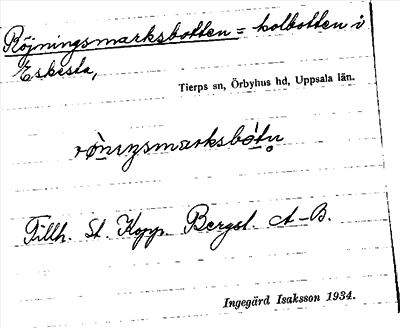 Röjningsmarksbotten = kolbotten i
Eskesta,
Tierps sn, Örbyhus hd, Uppsala län.
rö̀nıŋsmarksbótn̥
Tillh. St. Kopp. Bergsl. A-B.
Ingegärd Isaksson 1934.